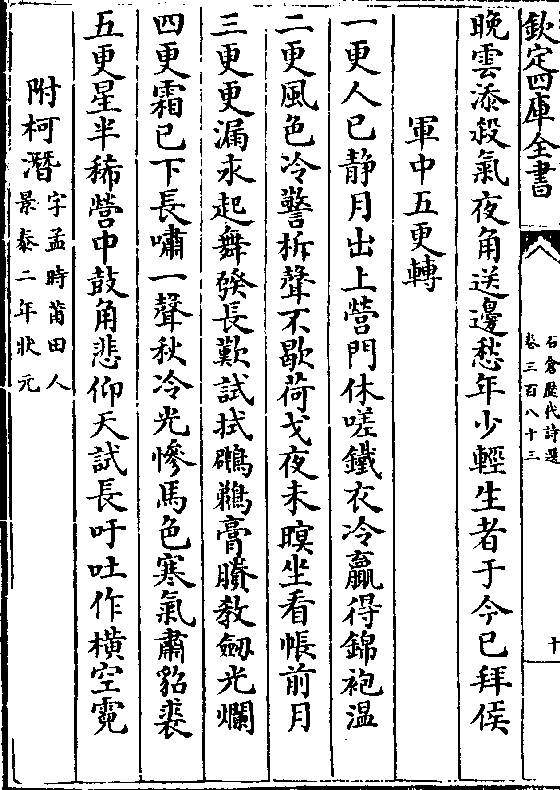 欽定四庫全書
石倉歴代詩選
卷三百八十三
十
晚雲添殺氣夜角送邊愁年少輕生者于今已拜侯
軍中五更轉
一更人已静月出上營門休嗟鐵衣冷贏得錦袍温
二更風色冷警柝聲不歇荷戈夜未暝坐看帳前月
三更更漏永起舞發長歎試拭鸊鵜膏賸教劒光爛
四更霜已下長嘯一聲秋冷光慘馬色寒氣肅貂裘
五更星半稀營中鼓角悲仰天試長吁吐作横空霓
附柯潛
字孟時莆田人
景泰二年狀元